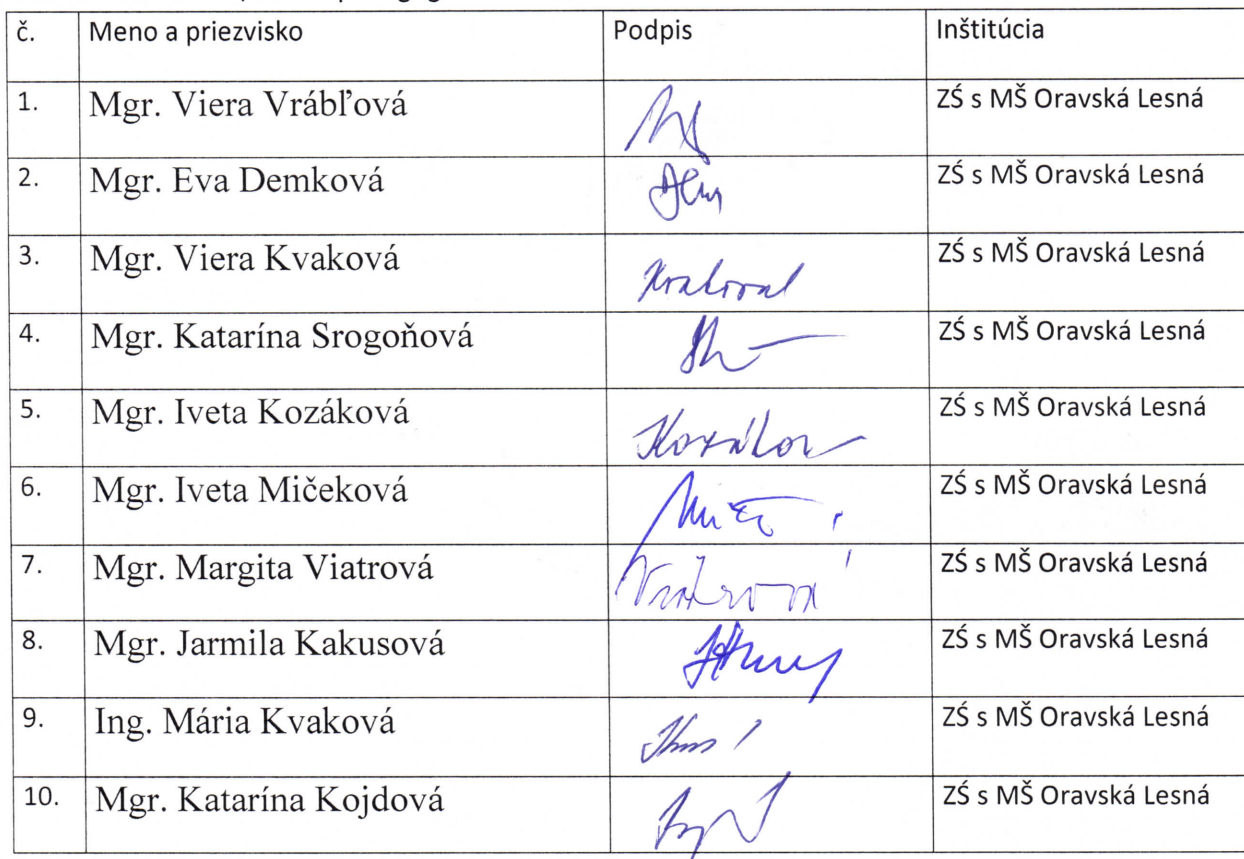 č. Meno a priezvisko Podpis Inštitúcia
1. Mgr. Viera Vrábľová ZŚ s MŠ Oravská Lesná
2. Mgr. Eva Demková ZŚ s MŠ Oravská Lesná
3. Mgr. Viera Kvaková ZŚ s MŠ Oravská Lesná
4. Mgr. Katarína Srogoňová ZŚ s MŠ Oravská Lesná
5. Mgr. Iveta Kozáková ZŚ s MŠ Oravská Lesná
6. Mgr. Iveta Mičeková ZŚ s MŠ Oravská Lesná
7. Mgr. Margita Viatrová ZŚ s MŠ Oravská Lesná
8. Mgr. Jarmila Kakusová ZŚ s MŠ Oravská Lesná
9. Ing. Mária Kvaková ZŚ s MŠ Oravská Lesná
10. Mgr. Katarína Kojdová ZŚ s MŠ Oravská Lesná